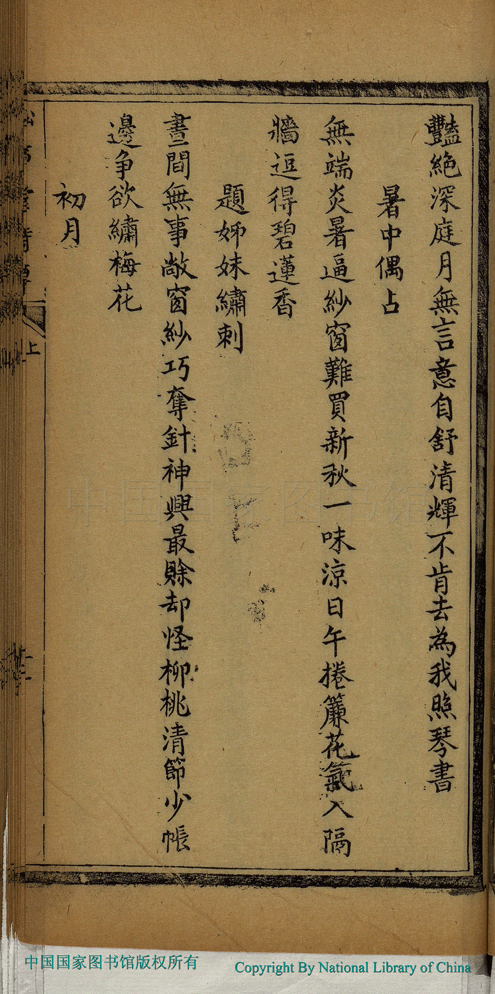 豔絶深庭月無言意自舒清輝不肯去為我照琴書
暑中偶占
無端炎暑逼紗窗難買新秋一味涼日午捲簾花氣入隔
牆逗得碧蓮香
題姊妹繡刺
晝間無事敞窗紗巧奪針神興最賒却怪柳桃清節少帳
邊争欲繡梅花
初月
上
中国国家图书馆版权所有
Copyright By National Library of China